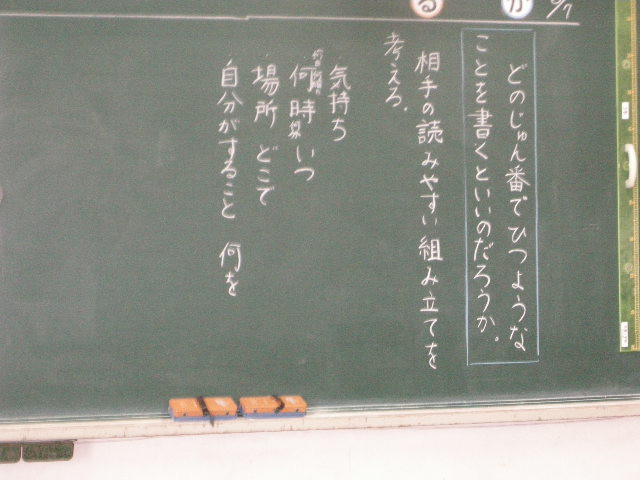 か
る
どのじゅん番でひつような
ことを書くといいのだろうか。
相手の読みやすい組み立てを
考える。
気持ち
何時 いつ
場所 どこで
自分がすること 何を